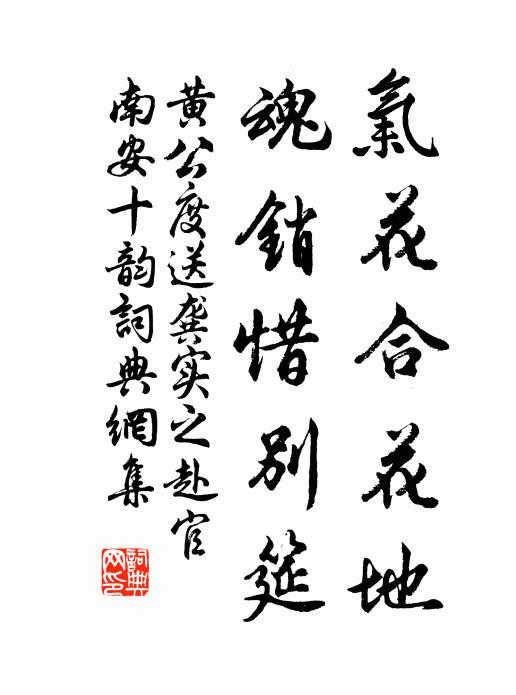 氣花合花地
魂銷惜別筵
黄公度送龚实之赴官
南安十韵詞典網集
詞典网印